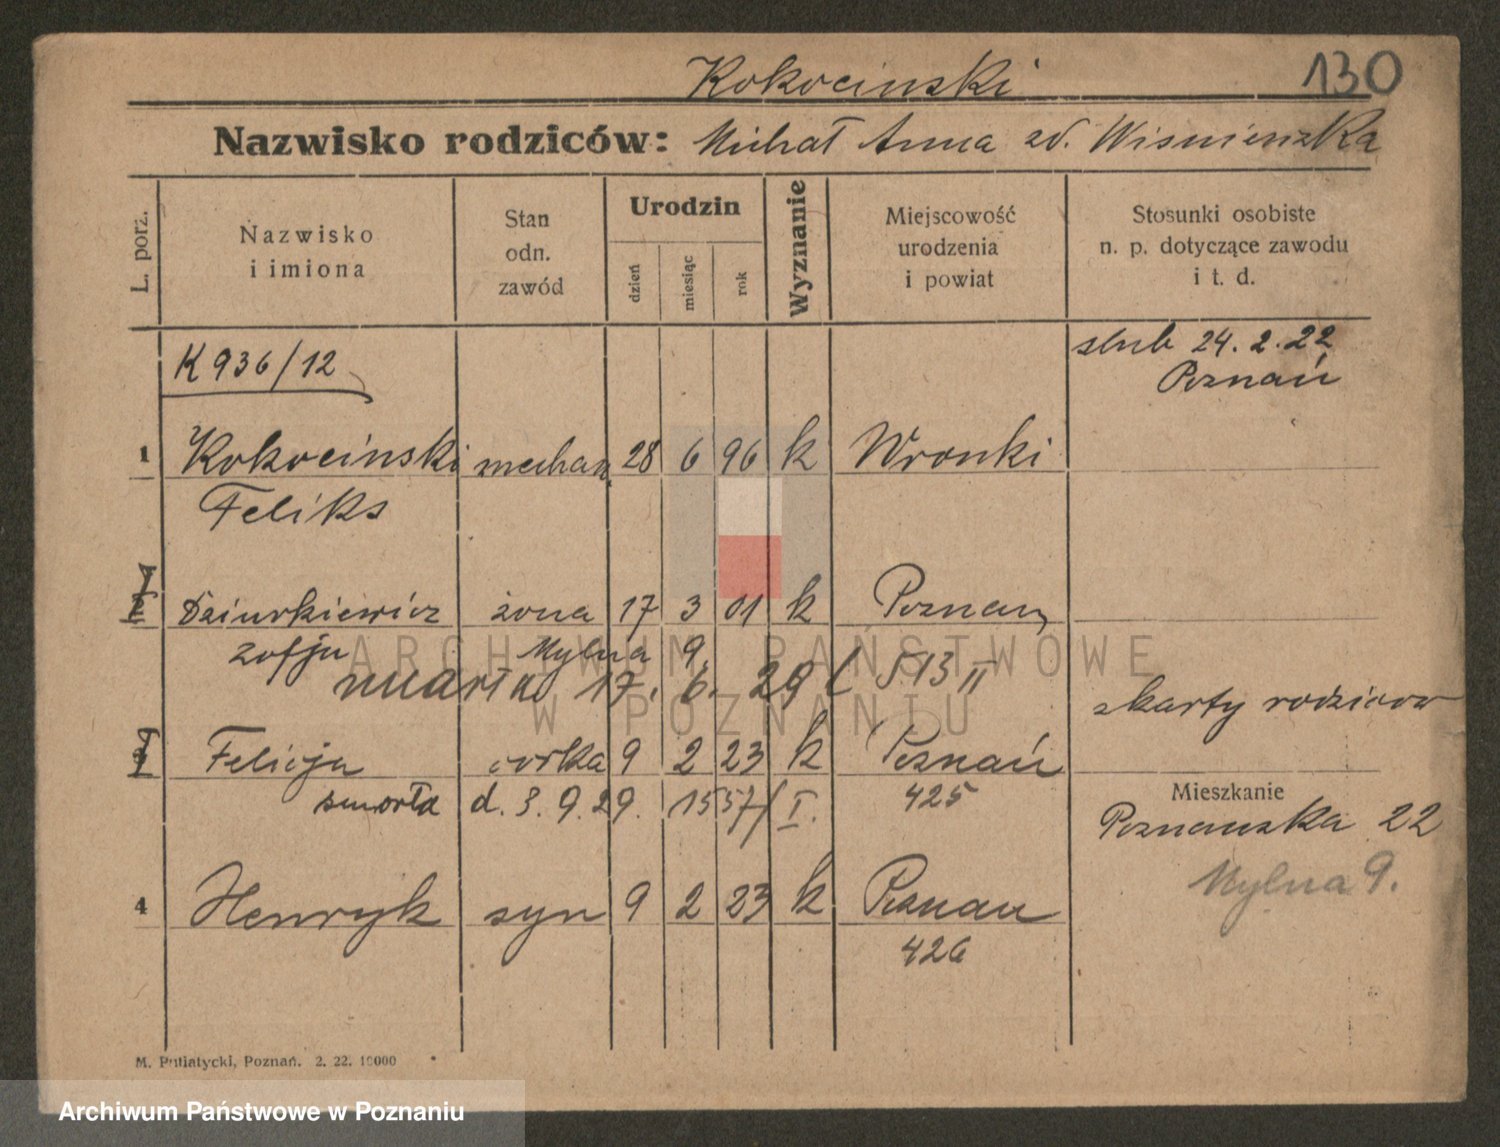 Kokocinski 130
Nazwisko rodziców: Michał Anna zd. Wisnienska
L. porz.
Nazwisko
i imiona
Stan
odn.
zawód
Urodzin
dzień
miesiąc
rok
Wyznanie
Miejscowość
urodzenia
i powiat
Stosunki osobiste
n. p. dotyczące zawodu
i t. d.
K 936/12
slub 24. 2. 22
Poznań
1 Kokocinski mechan 28 6 96 k Wronki
Feliks
2 Dziurkiewicz żona 17 3 01 k Poznan
Zofju Mylna 9.
17. 6. 29 513 II
z karty rodzicow
3 Felicja corka 9 2 23 k Poznań
smarła d. 3. 9. 29. 1557/I. 425
Mieszkanie
Poznanska 22
Mylna 9.
4 Henryk syn 9 2 23 k Poznan
426
M. Putiatycki, Poznań. 2. 22. 10000
ARCHIWUM PAŃSTWOWE
W POZNANIU
Archiwum Państwowe w Poznaniu